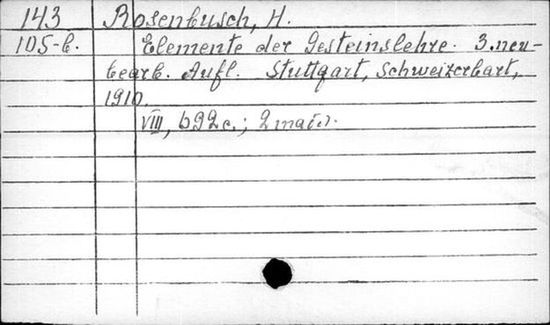 143 Rosenbusch, H.
105-b. Elemente der Gesteinslehre. 3. neu-
bearb. Aufl. Stuttgart, Schweizerbart,
1910.
VIII, 692 c.;